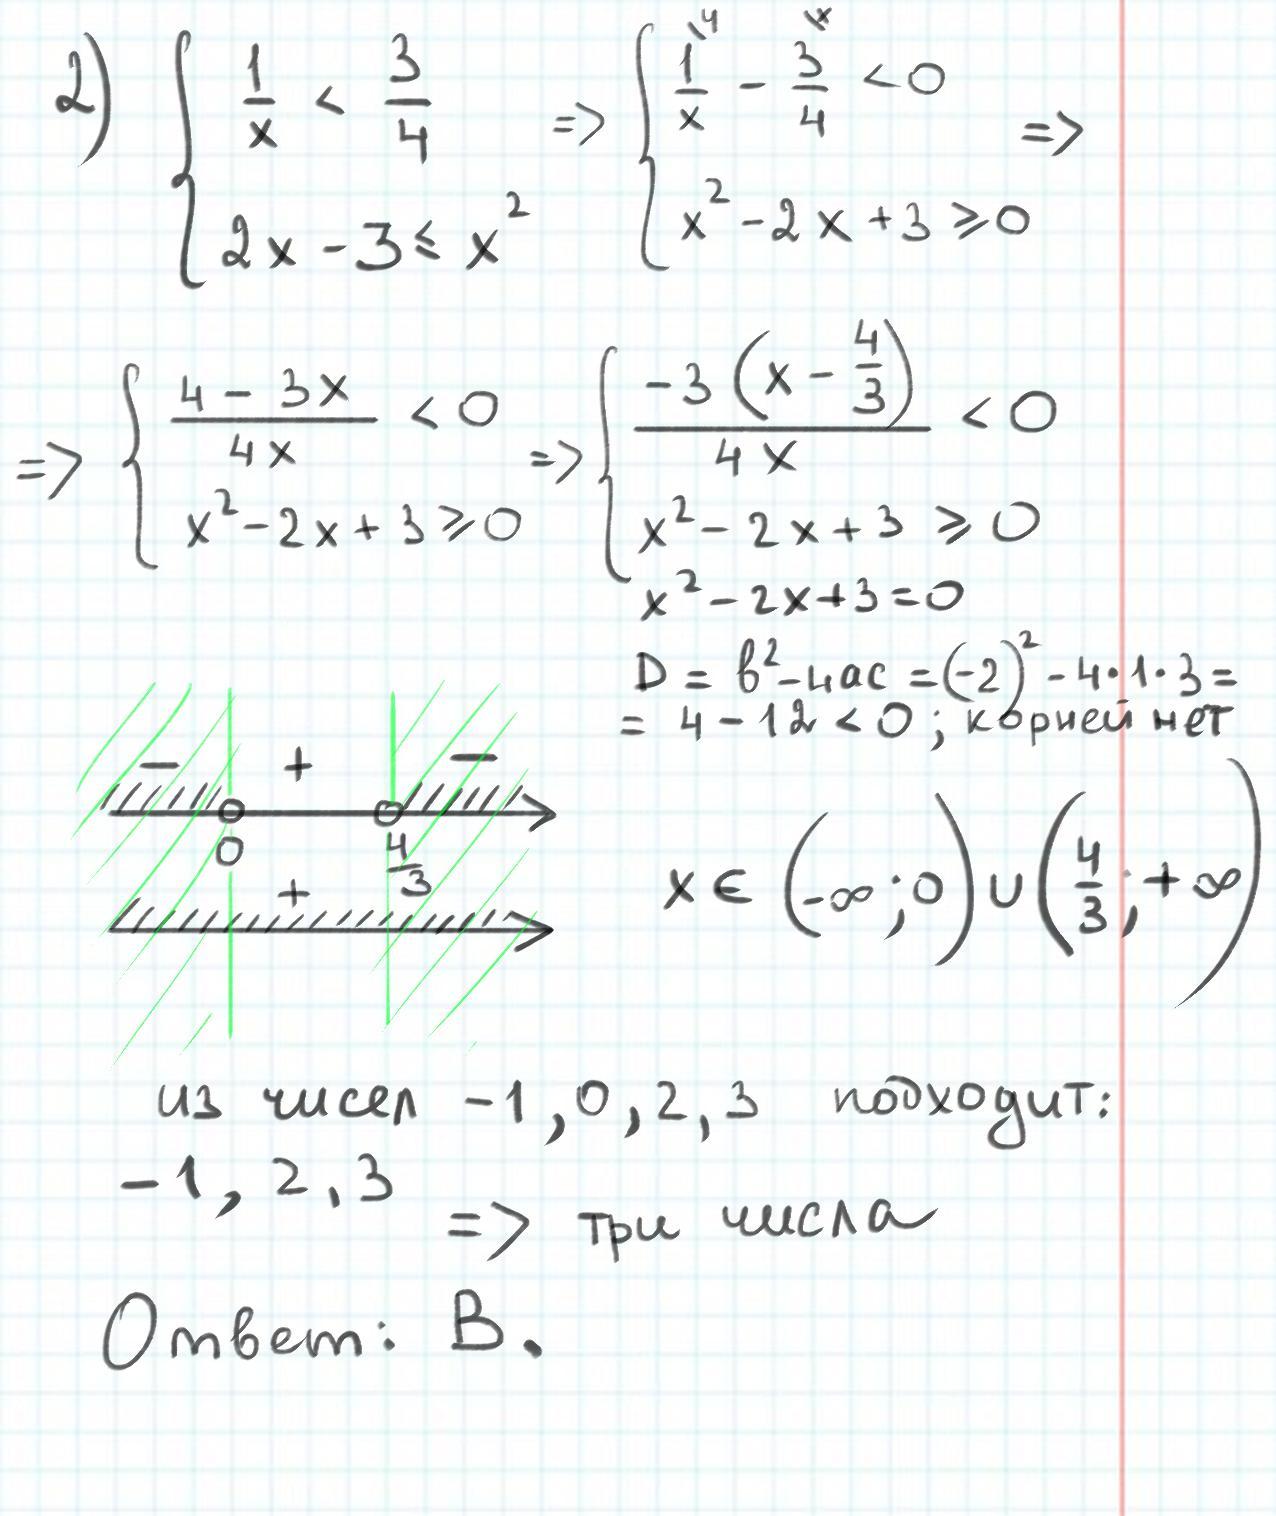 2) { 1/x < 3/4 => { 1/x \4 − 3/4 \x < 0 =>
2x − 3 ≤ x² x² − 2x + 3 ≥ 0
=> { (4 − 3x)/4x < 0 => { −3(x − 4/3)/4x < 0
x² − 2x + 3 ≥ 0 x² − 2x + 3 ≥ 0
x² − 2x + 3 = 0
D = b² − 4ac = (−2)² − 4·1·3 =
= 4 − 12 < 0 ; корней нет
− + −
0 4/3
+
x ∈ (−∞; 0) ∪ (4/3; +∞)
из чисел −1, 0, 2, 3 подходит:
−1, 2, 3
=> три числа
Ответ: В.